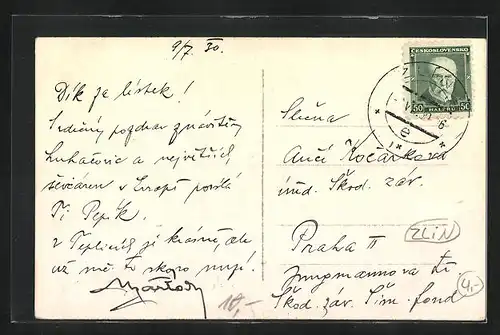 9/7. 30.
Dík za lístek!
Srdečný pozdrav z návštěvy
Luhačovic a největších
ševcáren v Evropě posílá
Ti Pepík.
V Teplicích je krásně, ale
už mě to skoro nebaví.
10,-
ČESKOSLOVENSKO
50 HALÉŘŮ 50
e
Slečna
Anči Kočárková
úřed. Škod. záv.
ZLÍN
Praha II
Jungmannova tř.
Škod. záv. fond
4,-